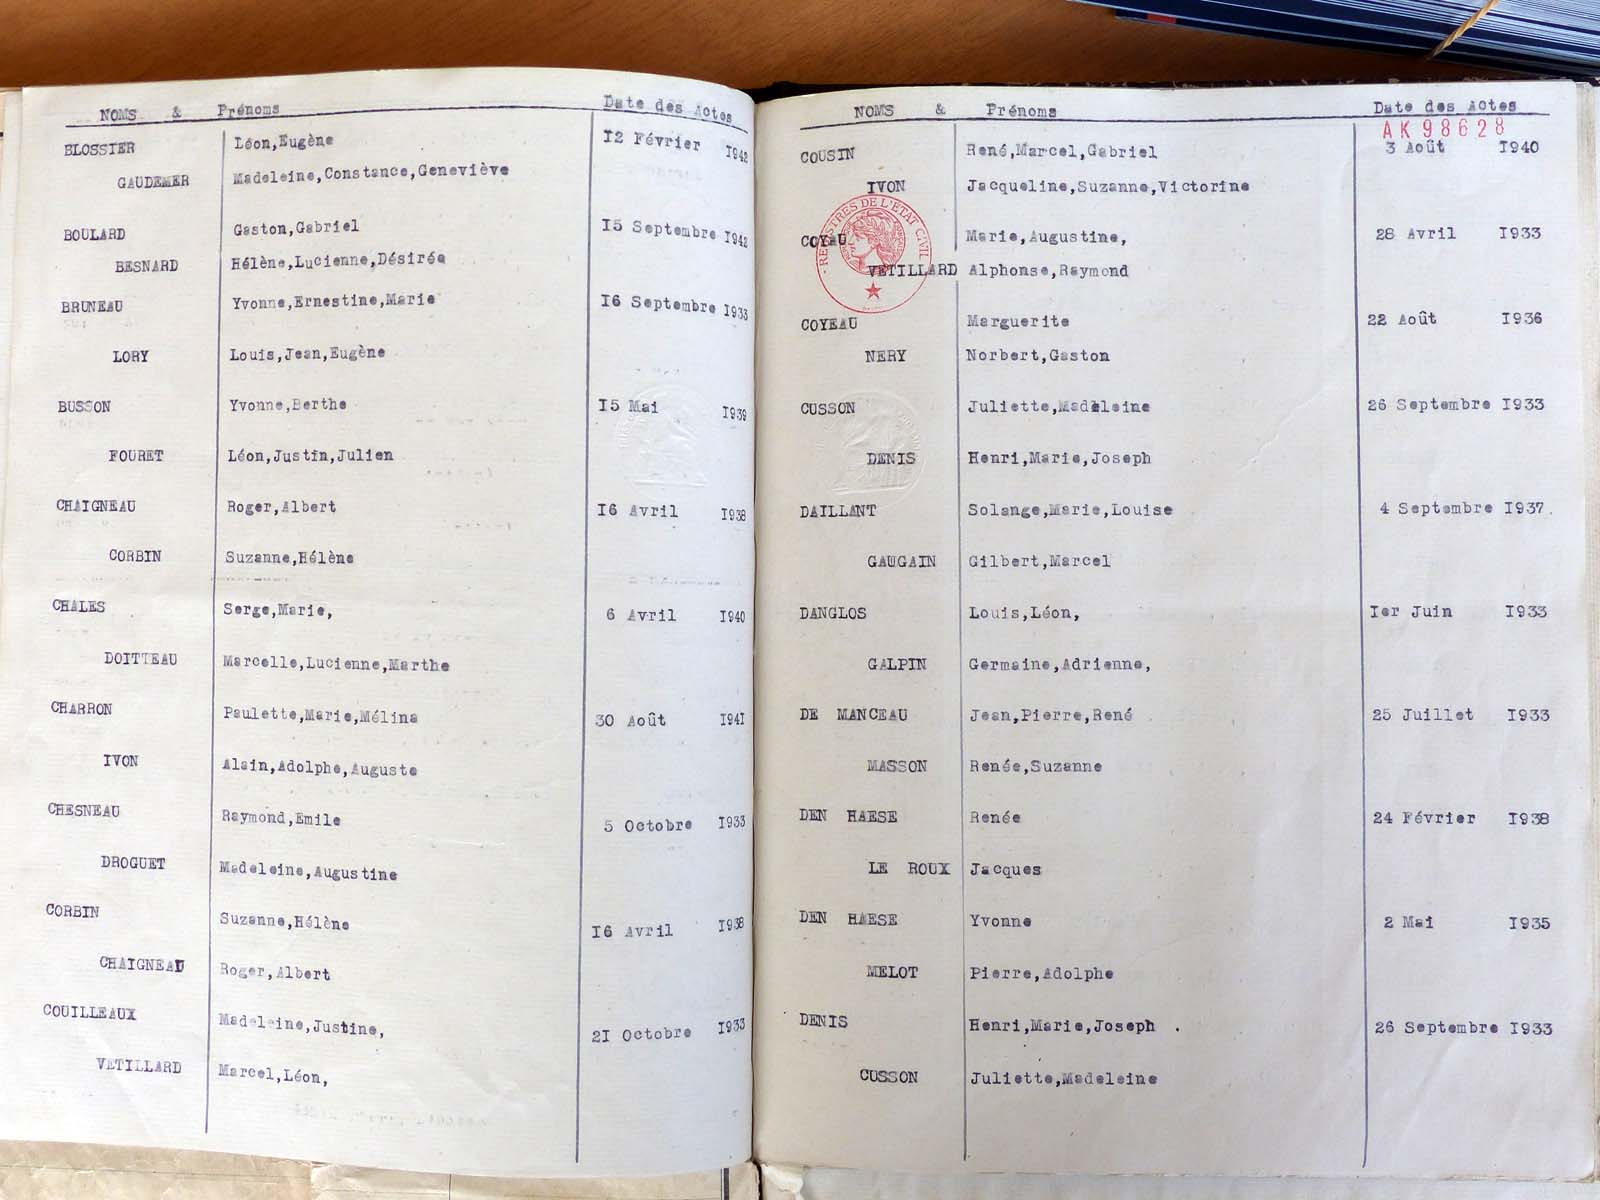 NOMS & Prénoms Date des Actes
BLOSSIER Léon,Eugène 12 Février 1942
GAUDEMER Madeleine,Constance,Geneviève
BOULARD Gaston,Gabriel 15 Septembre 1942
BESNARD Hélène,Lucienne,Désirée
BRUNEAU Yvonne,Ernestine,Marie 16 Septembre 1933
LORY Louis,Jean,Eugène
BUSSON Yvonne,Berthe 15 Mai 1939
FOURET Léon,Justin,Julien
CHAIGNEAU Roger,Albert 16 Avril 1938
CORBIN Suzanne,Hélène
CHALES Serge,Marie, 6 Avril 1940
DOITTEAU Marcelle,Lucienne,Marthe
CHARRON Paulette,Marie,Mélina 30 Août 1941
IVON Alain,Adolphe,Auguste
CHESNEAU Raymond,Emile 5 Octobre 1933
DROGUET Madeleine,Augustine
CORBIN Suzanne,Hélène 16 Avril 1938
CHAIGNEAU Roger,Albert
COUILLEAUX Madeleine,Justine, 21 Octobre 1933
VETILLARD Marcel,Léon,
NOMS & Prénoms Date des Actes
AK98628
COUSIN René,Marcel,Gabriel 3 Août 1940
IVON Jacqueline,Suzanne,Victorine
REGISTRES DE L'ÉTAT CIVIL
COYAU Marie,Augustine, 28 Avril 1933
VETILLARD Alphonse,Raymond
COYEAU Marguerite 22 Août 1936
NERY Norbert,Gaston
CUSSON Juliette,Madeleine 26 Septembre 1933
DENIS Henri,Marie,Joseph
DAILLANT Solange,Marie,Louise 4 Septembre 1937.
GAUGAIN Gilbert,Marcel
DANGLOS Louis,Léon, 1er Juin 1933
GALPIN Germaine,Adrienne,
DE MANCEAU Jean,Pierre,René 25 Juillet 1933
MASSON Renée,Suzanne
DEN HAESE Renée 24 Février 1938
LE ROUX Jacques
DEN HAESE Yvonne 2 Mai 1935
MELOT Pierre,Adolphe
DENIS Henri,Marie,Joseph . 26 Septembre 1933
CUSSON Juliette,Madeleine